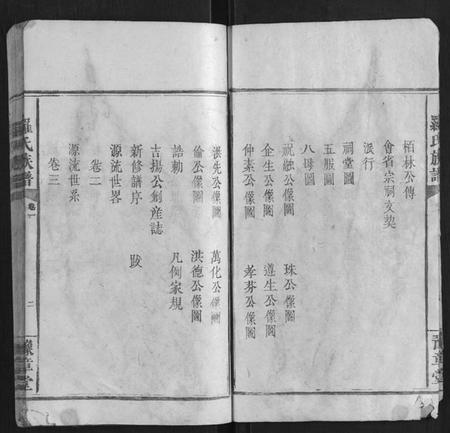 羅氏族譜
柏林公傳
会省宗祠文契
派行
祠堂圖
五服圖
八母圖
祝融公像圖 珠公像圖
企生公像圖 遵生公像圖
仲素公像圖 孝芬公像圖
豫章堂
洪先公像圖 萬化公像圖
倫公像圖 洪德公像圖
誥勅 凡例家規
吉揚公創産誌
新修譜序 跋
源流世畧
卷二
源流世系
卷三
羅氏族譜 卷一 二 豫章堂